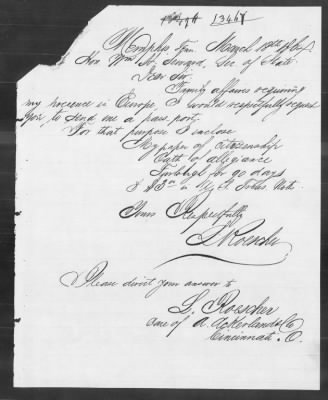 13461
Memphis Ten. March 18th 
Hon Wm H. Seward, Sec of State
Dear Sir
Family affaires requiring
my presence in Europe, I would respectfully request
you, to send me a pass port.
For that purpose I enclose
My paper of citizenship
Oath of allegiance
Furlough for 90 days
& $3 in U. S. Notes
Yours Respectfully
L Roescher
Please direct your answer to
L. Roescher
care of A. Ackerland & Co
Cincinnati. O.